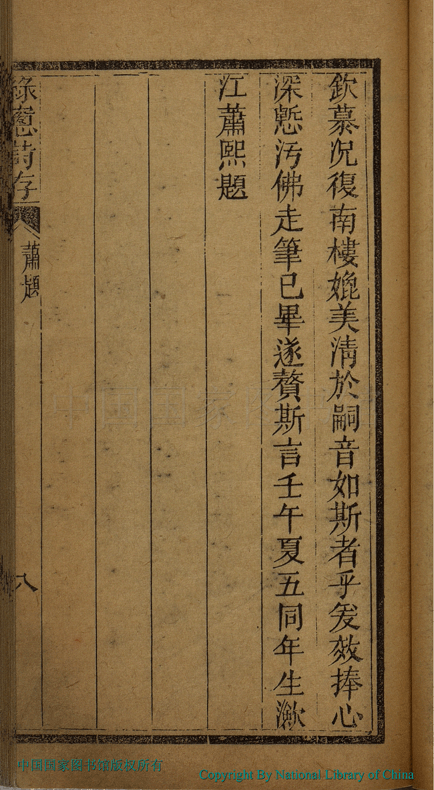 欽慕況復南樓媲美清於嗣音如斯者乎爰效捧心
深慙汚佛走筆已畢遂贅斯言壬午夏五同年生潄
江蕭熙題
詩存
蕭題
八
中国国家图书馆版权所有
Copyright By National Library of China